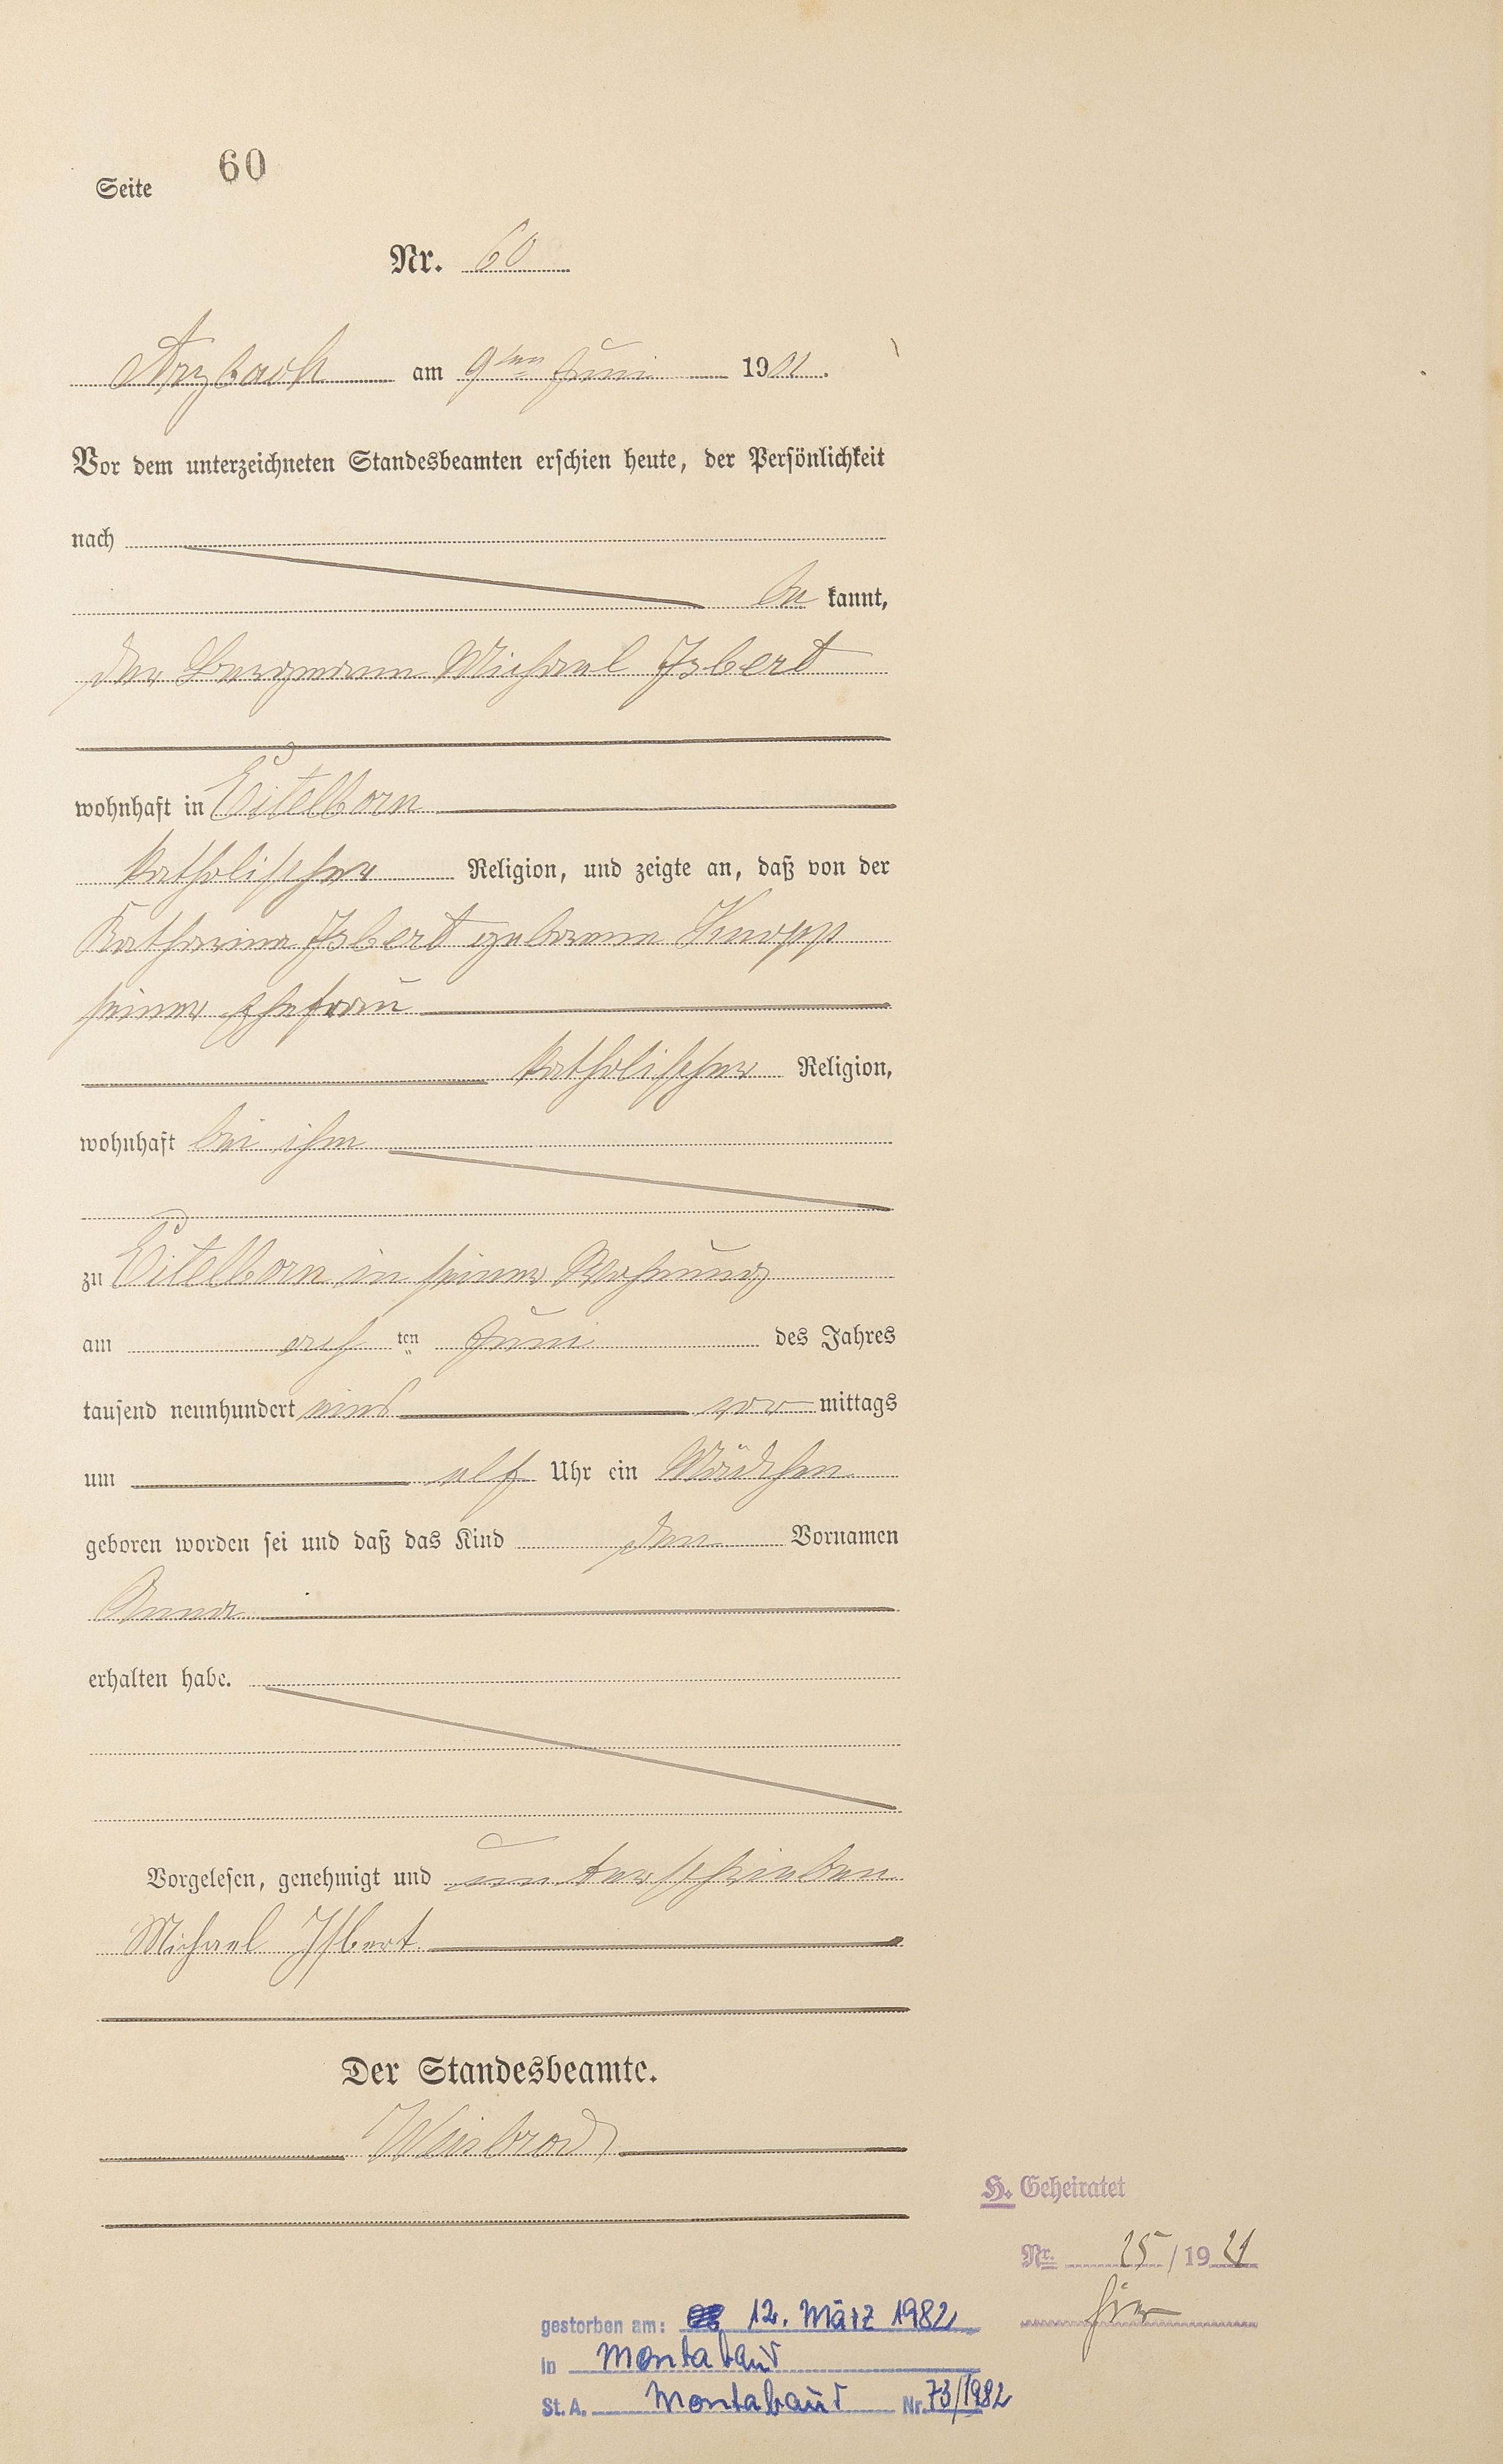 Seite 60
Nr. 60
Arzbach am 9ten Juni 1901.
Vor dem unterzeichneten Standesbeamten erschien heute, der Persönlichkeit
nach
be kannt,
der Bergmann Michael Isbert
wohnhaft in Eitelborn
katholischer Religion, und zeigte an, daß von der
Katharina Isbert geborene Knopp
seiner Ehefrau
katholischer Religion,
wohnhaft bei ihm
zu Eitelborn in seiner Wohnung
am ach ten Juni des Jahres
tausend neunhundert eins vor mittags
um elf Uhr ein Mädchen
geboren worden sei und daß das Kind den Vornamen
Anna
erhalten habe.
Vorgelesen, genehmigt und unterschrieben
Michael Isbert
Der Standesbeamte.
Weisbrod
H. Geheiratet
Nr. 25/1921
hier
gestorben am: 12. März 1982
in Montabaur
St. A. Montabaur Nr. 73/1982